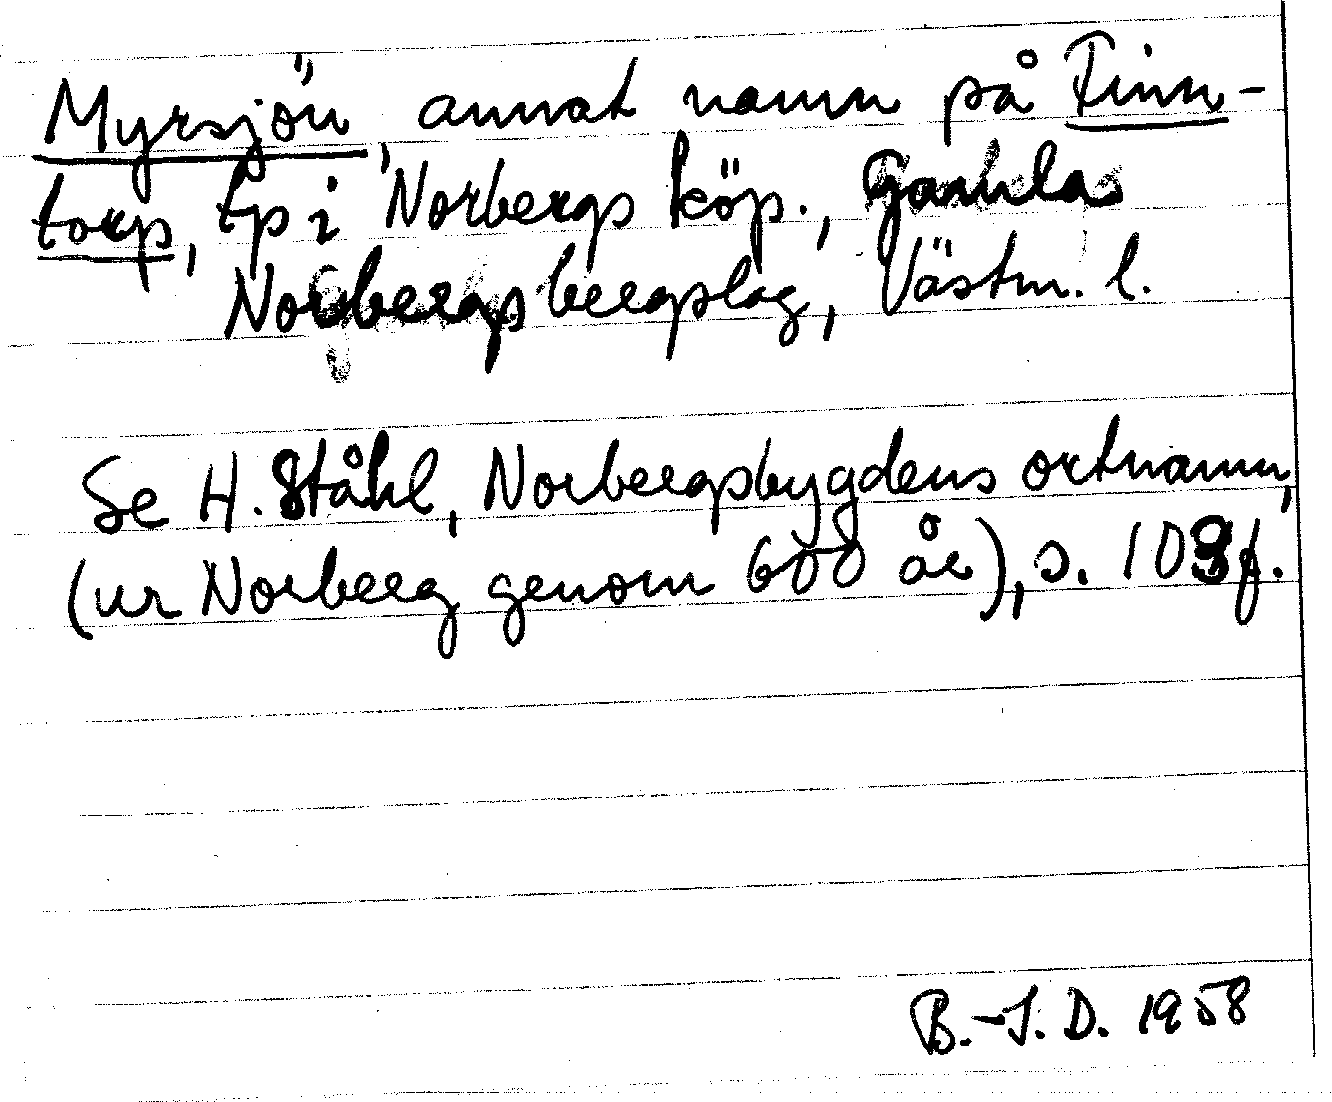 Myrsjön, annat namn på Finn-
torp, tp i Norbergs köp., Gamla
Norbergs bergslag, Västm. l.
Se H. Ståhl, Norbergsbygdens ortnamn,
(ur Norberg genom 600 år), s. 103 f.
B.-J. D. 1958